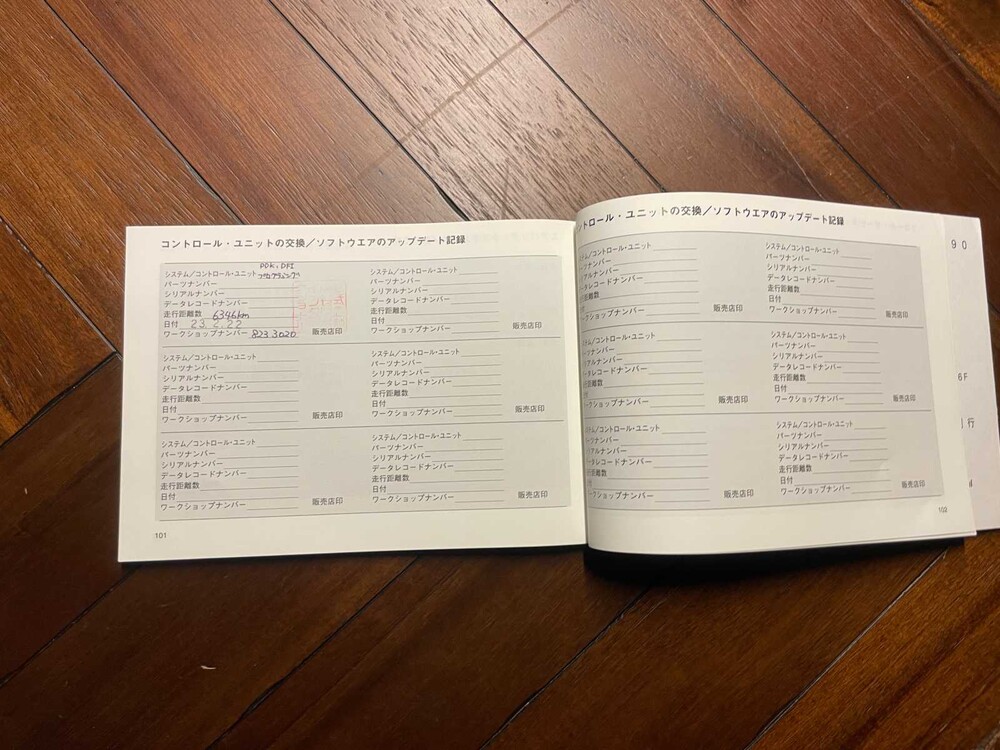 コントロール・ユニットの交換／ソフトウエアのアップデート記録
PDK、DFI
システム/コントロール・ユニット プログラミング
パーツナンバー
シリアルナンバー
データレコードナンバー
走行距離数 6346km
日付 23.2.22
ワークショップナンバー 8233020 販売店印
システム/コントロール・ユニット
パーツナンバー
シリアルナンバー
データレコードナンバー
走行距離数
日付
ワークショップナンバー 販売店印
システム/コントロール・ユニット
パーツナンバー
シリアルナンバー
データレコードナンバー
走行距離数
日付
ワークショップナンバー 販売店印
システム/コントロール・ユニット
パーツナンバー
シリアルナンバー
データレコードナンバー
走行距離数
日付
ワークショップナンバー 販売店印
システム/コントロール・ユニット
パーツナンバー
シリアルナンバー
データレコードナンバー
走行距離数
日付
ワークショップナンバー 販売店印
システム/コントロール・ユニット
パーツナンバー
シリアルナンバー
データレコードナンバー
走行距離数
日付
ワークショップナンバー 販売店印
101
ントロール・ユニットの交換／ソフトウエアのアップデート記録
ステム/コントロール・ユニット
ーツナンバー
リアルナンバー
ータレコードナンバー
行距離数
付
ークショップナンバー 販売店印
システム/コントロール・ユニット
パーツナンバー
シリアルナンバー
データレコードナンバー
走行距離数
日付
ワークショップナンバー 販売店印
ステム/コントロール・ユニット
ーツナンバー
リアルナンバー
ータレコードナンバー
行距離数
付
ークショップナンバー 販売店印
システム/コントロール・ユニット
パーツナンバー
シリアルナンバー
データレコードナンバー
走行距離数
日付
ワークショップナンバー 販売店印
ステム/コントロール・ユニット
ーツナンバー
リアルナンバー
ータレコードナンバー
行距離数
付
ークショップナンバー 販売店印
システム/コントロール・ユニット
パーツナンバー
シリアルナンバー
データレコードナンバー
走行距離数
日付
ワークショップナンバー 販売店印
102
90
6F
行